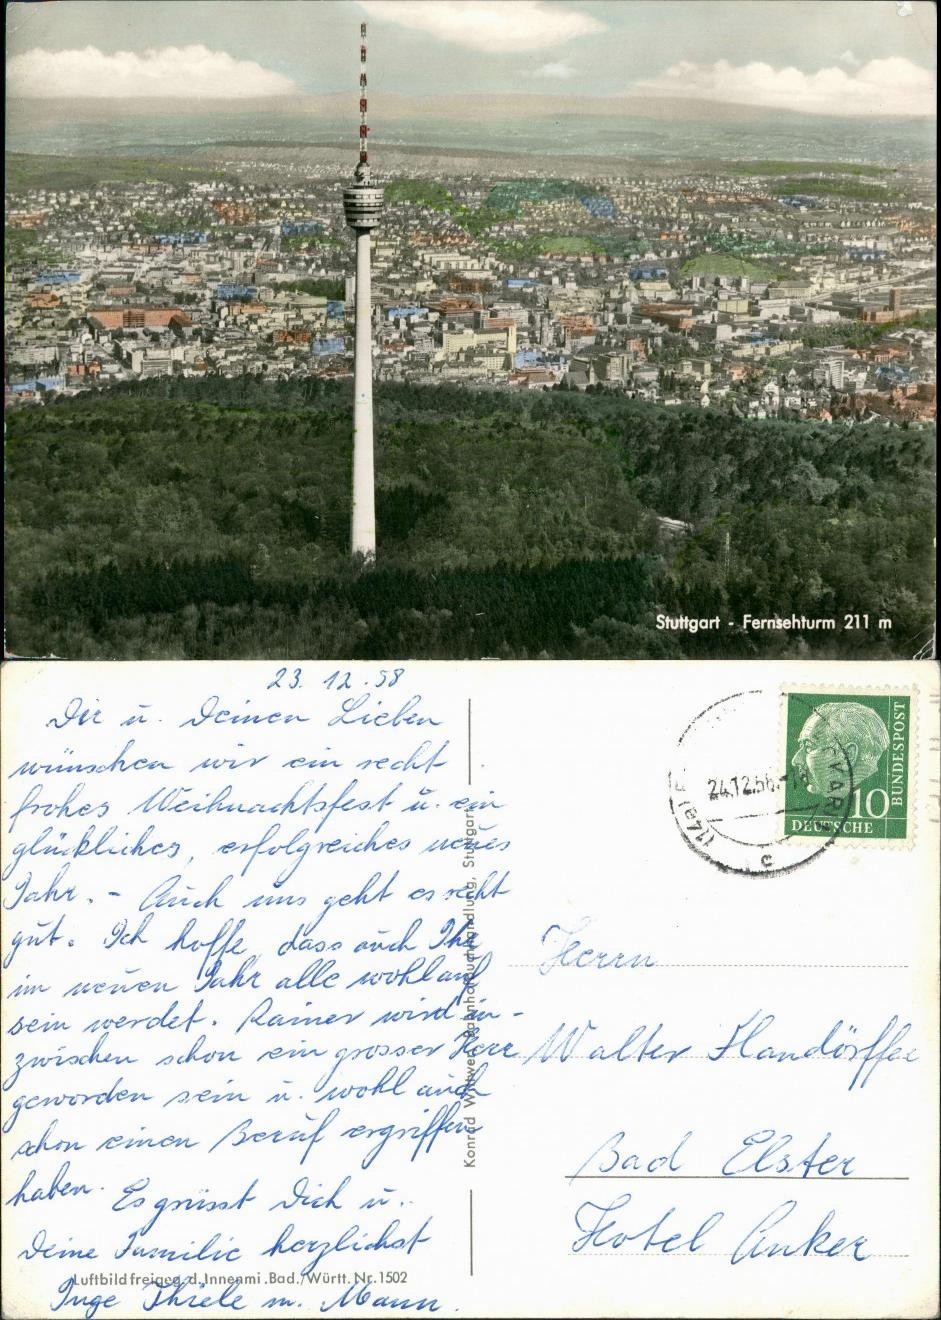 Stuttgart - Fernsehturm 211 m
23. 12. 58
Dir u. Deinen Lieben
wünschen wir ein recht
frohes Weihnachtsfest u. ein
glückliches, erfolgreiches neues
Jahr. - Auch uns geht es recht
gut. Ich hoffe, dass auch Ihr
im neuen Jahr alle wohlauf
sein werdet. Rainer wird in-
zwischen schon ein grosser Herr
geworden sein u. wohl auch
schon einen Beruf ergriffen
haben. Es grüsst Dich u.
Deine Familie herzlichst
Inge Thiele m. Mann.
Luftbild freigeg. d. Innenmi. Bad./Württ. Nr. 1502
Konrad Wittwer, Bahnhofbuchhandlung, Stuttgart
24.12.58
(14a)
c
10
DEUTSCHE
BUNDESPOST
Herrn
Walter Flandörffer
Bad Elster
Hotel Anker